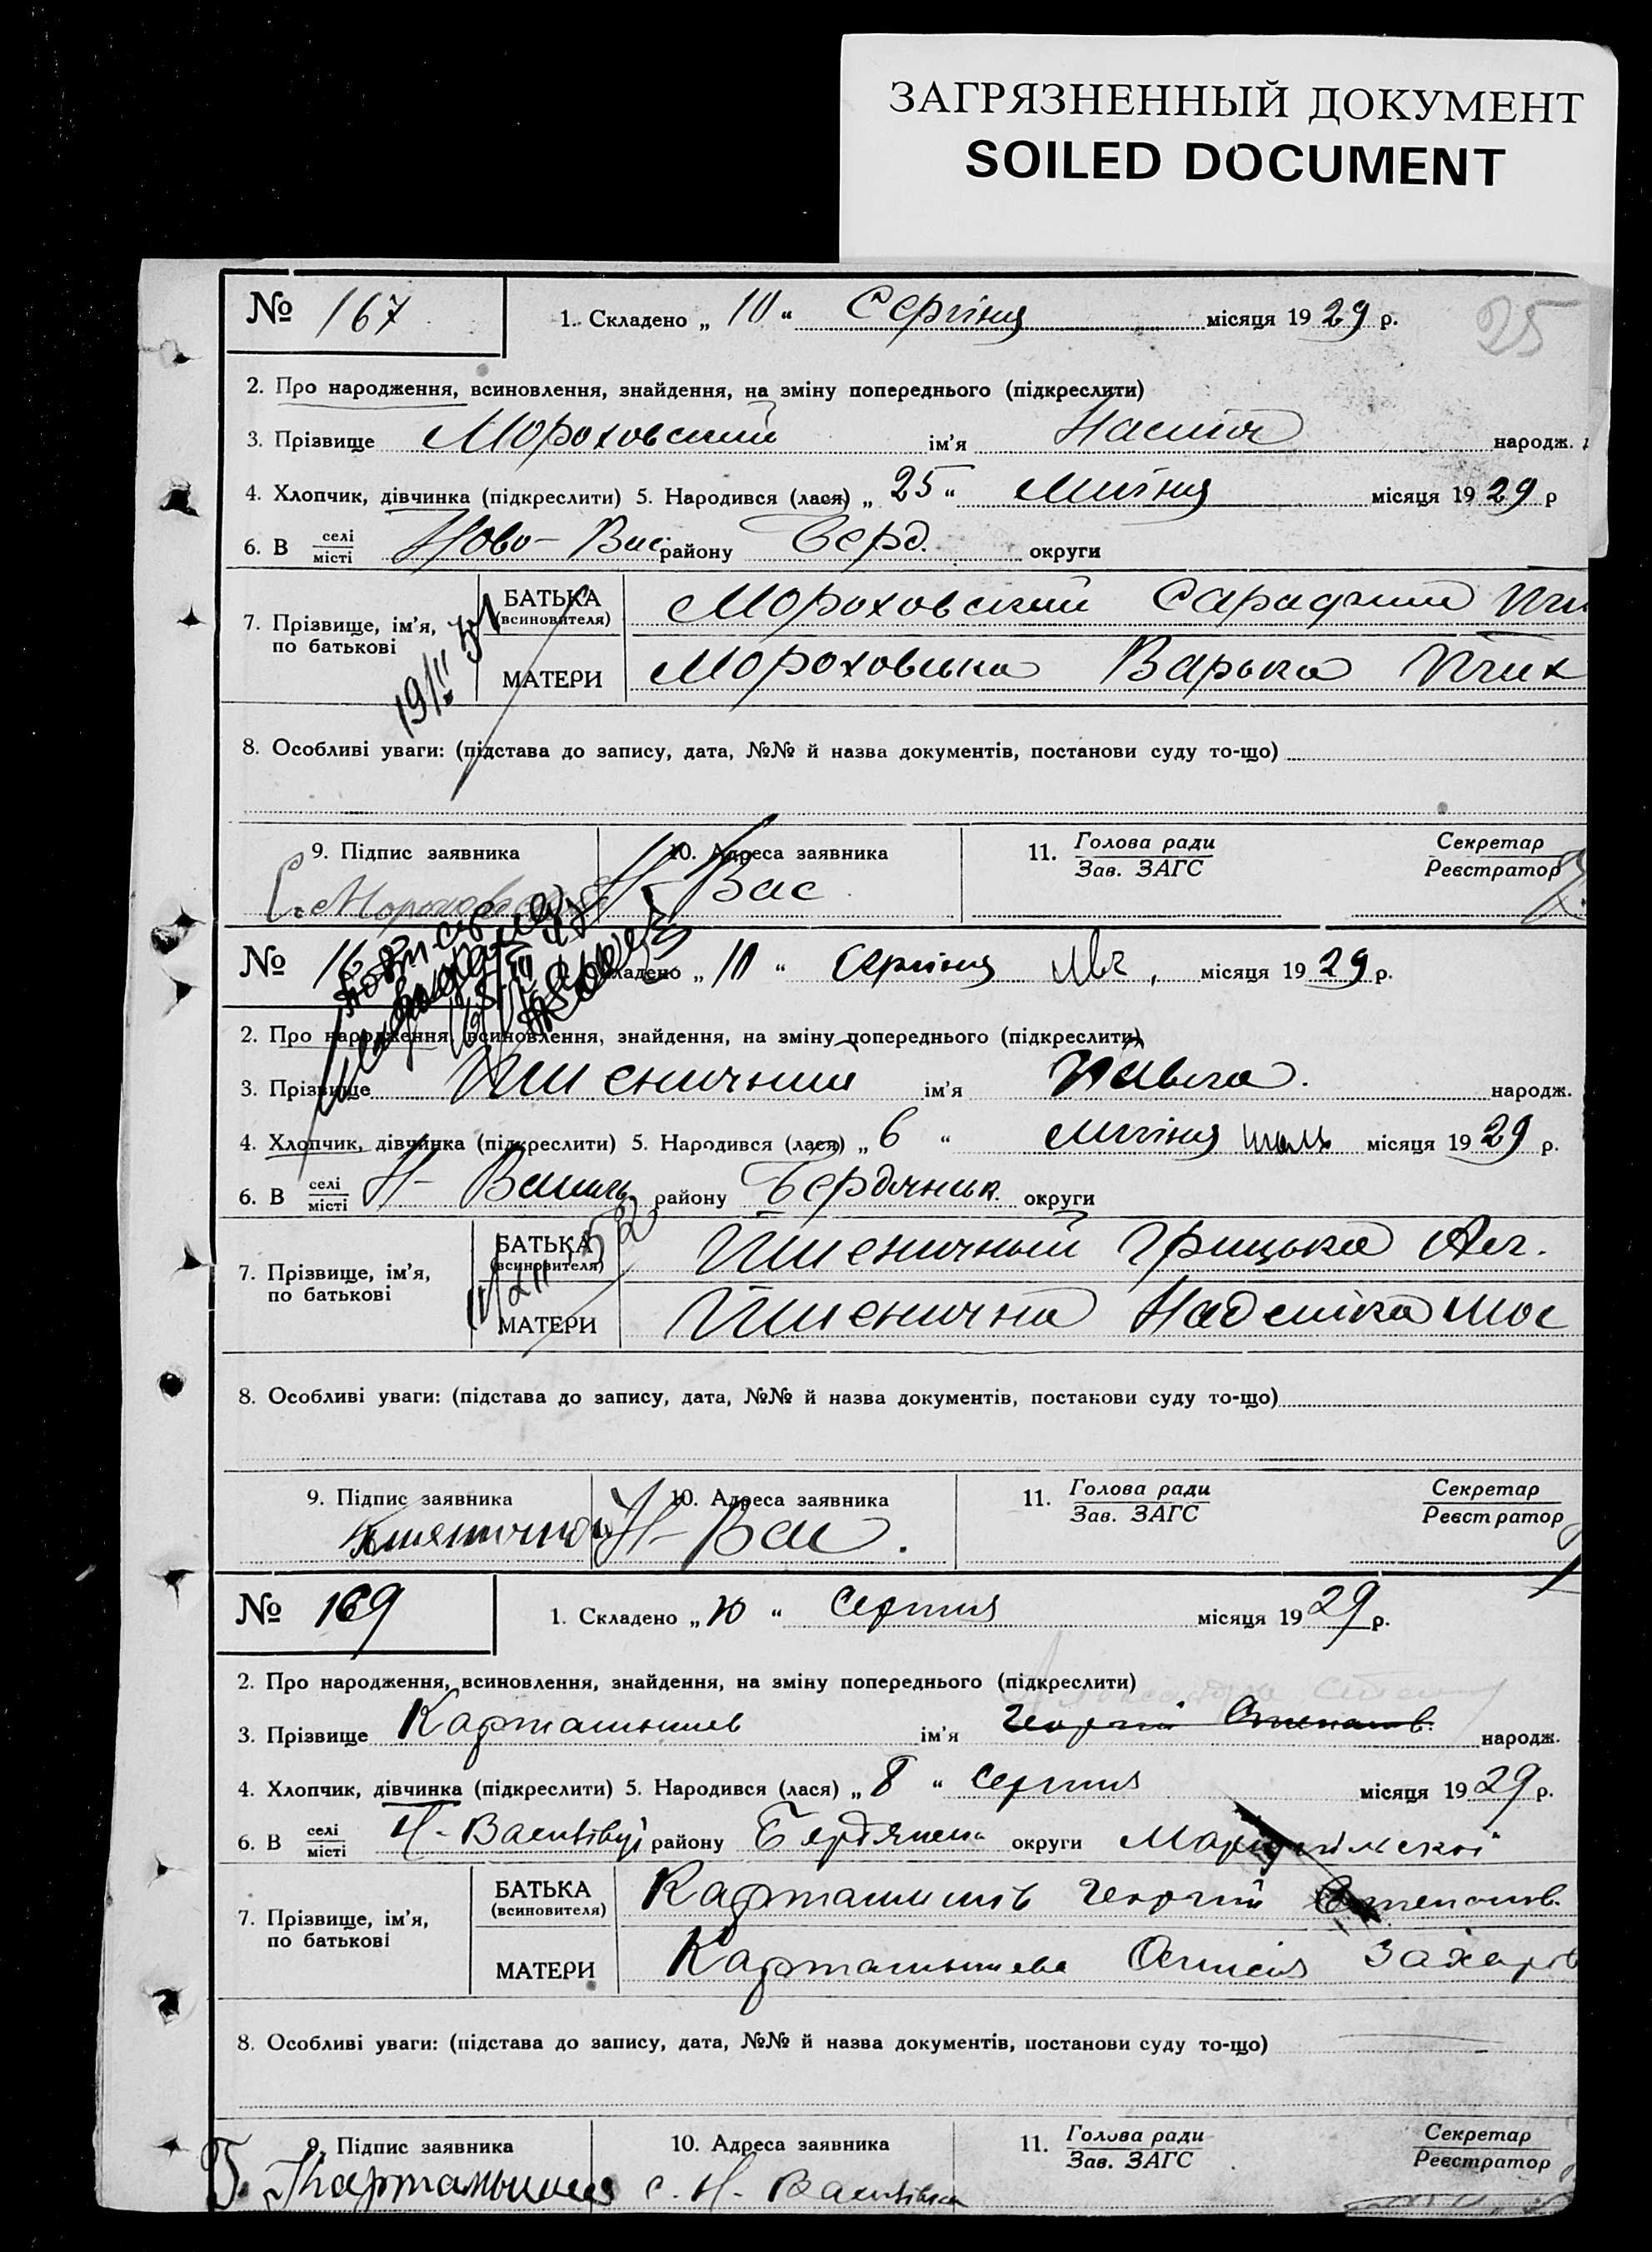 ЗАГРЯЗНЕННЫЙ ДОКУМЕНТ
SOILED DOCUMENT
25
№ 167
1. Складено „ 10 “ Серпіня місяця 1929 р.
2. Про народження, всиновлення, знайдення, на зміну попереднього (підкреслити)
3. Прізвище Мороховский ім'я Настя народж.
4. Хлопчик, дівчинка (підкреслити) 5. Народився (лася) „ 25 “ Липіня місяця 1929 р
6. В селі/місті Ново-Вас району Берд. округи
7. Прізвище, ім'я, по батькові
БАТЬКА (всиновителя) Мороховский
МАТЕРИ Мороховська Варька
8. Особливі уваги: (підстава до запису, дата, №№ й назва документів, постанови суду то-що)
9. Підпис заявника
10. Адреса заявника
11. Голова ради / Зав. ЗАГС
Секретар / Реєстратор
Н-Вас
№
Складено „ 10 “ Серпіня місяця 1929 р.
2. Про народження, всиновлення, знайдення, на зміну попереднього (підкреслити)
3. Прізвище Пшеничний ім'я Павла. народж.
4. Хлопчик, дівчинка (підкреслити) 5. Народився (лася) „ 6 “ місяця 1929 р.
6. В селі/місті Н- району округи
7. Прізвище, ім'я, по батькові
БАТЬКА (всиновителя) Пшеничный Грицько
МАТЕРИ Пшенична
8. Особливі уваги: (підстава до запису, дата, №№ й назва документів, постанови суду то-що)
9. Підпис заявника
10. Адреса заявника
11. Голова ради / Зав. ЗАГС
Секретар / Реєстратор
Н-Вас.
№ 169
1. Складено „ 10 “ Серпня місяця 1929 р.
2. Про народження, всиновлення, знайдення, на зміну попереднього (підкреслити)
3. Прізвище Картамышев ім'я Георгій Степанов. народж.
4. Хлопчик, дівчинка (підкреслити) 5. Народився (лася) „ 8 “ серпня місяця 1929 р.
6. В селі/місті району округи
7. Прізвище, ім'я, по батькові
БАТЬКА (всиновителя) Картамишів Георгій Степанов.
МАТЕРИ Картамышева Захаров
8. Особливі уваги: (підстава до запису, дата, №№ й назва документів, постанови суду то-що)
9. Підпис заявника
10. Адреса заявника
11. Голова ради / Зав. ЗАГС
Секретар / Реєстратор
Г. Картамышев с. Н-